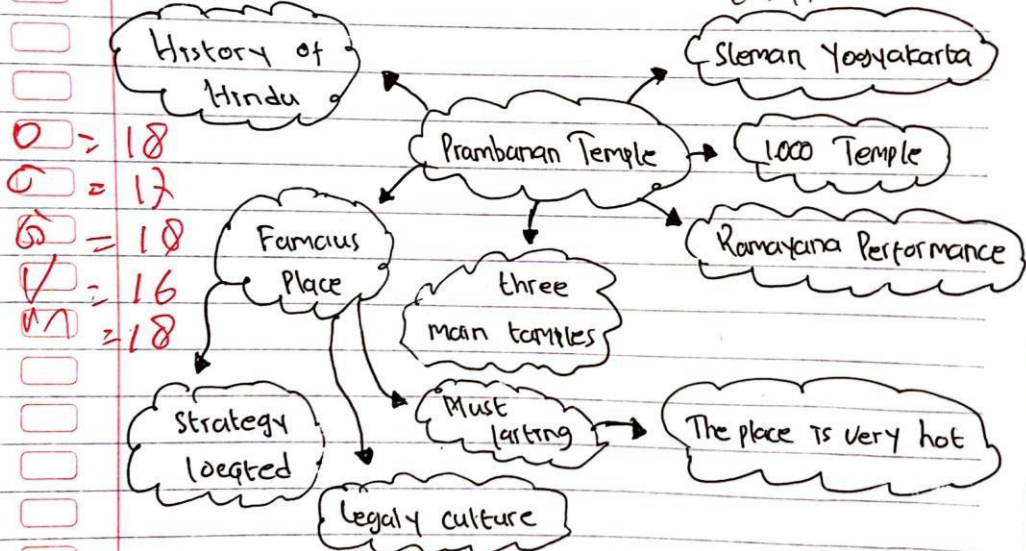 History of
Hindu
Sleman Yogyakarta
Prambanan Temple
1.000 Temple
Ramayana Performance
Famous
Place
three
main tamples
Strategy
located
Must
The place is very hot
Legaly culture
= 18
= 17
= 18
V = 16
= 18